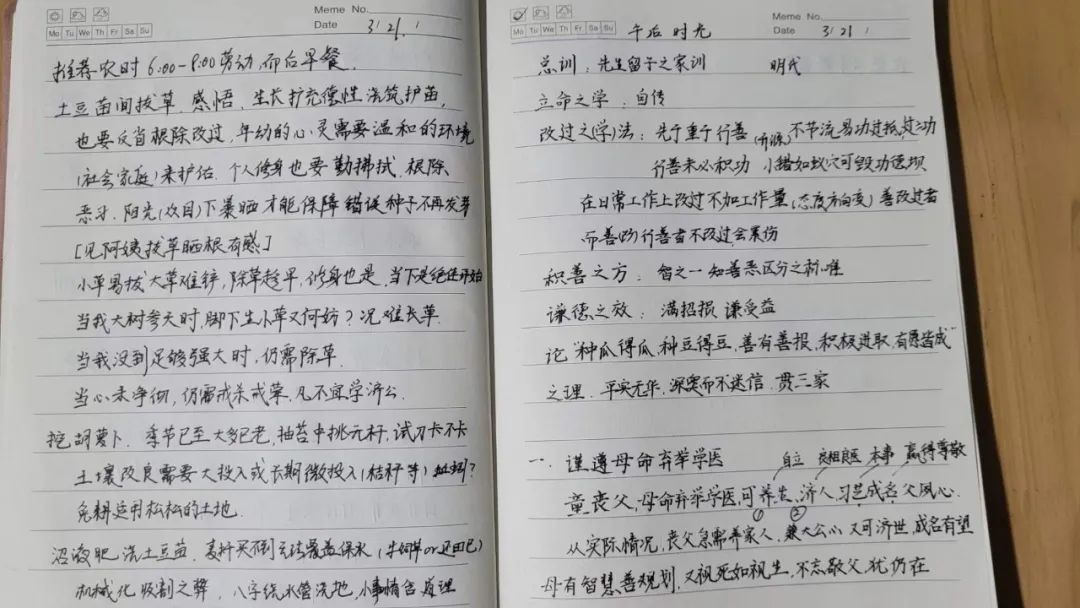 Meme No.
Mo Tu We Th Fr Sa Su
Date 3/21/
推荐农时 6:00-8:00劳动,而后早餐.
土豆苗间拔草.感悟.生长扩充德性 法筑护苗,
也要反省根除改过,年幼的心灵需要温和的环境
(社会家庭)来护佑.个人修身也要勤拂拭.根除
恶习.阳光(众目)下暴晒才能保障错误种子不再发芽
[见阿姨拔草晒根有感]
小草易拔大草难锌,除草趁早,修身也是.当下是绝佳开始
当我大树参天时,脚下生小草又何妨?况难长草.
当我没到足够强大时,仍需除草.
当心未净彻,仍需戒杀戒荤.凡不宜学济公.
挖胡萝卜.季节已至大多已老,抽苔中挑元杆,试刀卡不卡
土壤改良需要大投入或长期微投入(秸秆等)
免耕适用松松的土地.
沼液肥.浇土豆苗.麦秆买不到无法覆盖保水(牛饲料or还田巴)
机械化收割之弊.八字绕水管浇地,小事情含道理
Meme No.
Mo Tu We Th Fr Sa Su
Date 3/21/
午后时光
总训:先生留子之家训 明代
立命之学:自传
改过之(学)法:先于重于行善(开源)不节流易功过抵过功
行善未必积功 小错如蚁穴可毁功德坝
在日常工作上改过不加工作量(态度方向变)善改过者
而善 行善者不改过会累伤
积善之方:智之一知善恶区分之标准
谦德之效:满招损 谦受益
论"种瓜得瓜,种豆得豆,善有善报,积极进取,有愿皆成"
之理.平实无华,深奥而不迷信.贯三家
一.谨遵母命弃举学医 自立 良相良医 本事 赢得尊敬
童丧父,母命弃举学医,可养生,济人,习艺成名父夙心.
① ②
从实际情况,丧父急需养家人,兼大公心 又可济世,成名有望
母有智慧善规划.又视死如视生,不忘敬父,犹仍在